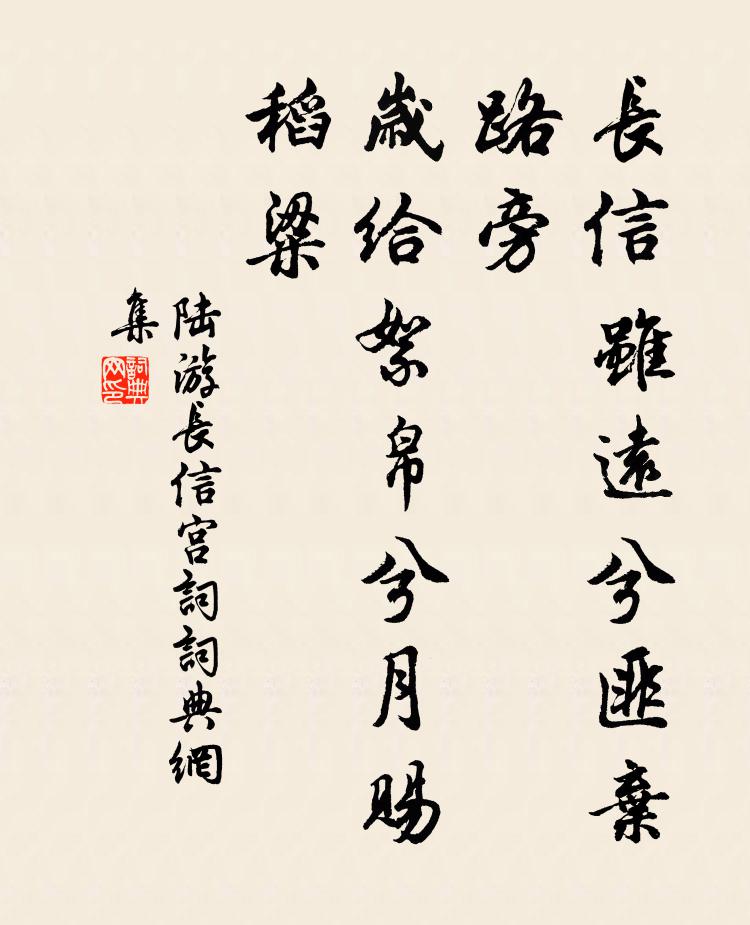 長信雖遠兮匪棄
路旁
歲給絮帛兮月賜
稻粱
陸游長信宮詞詞典網
集
詞典
网印